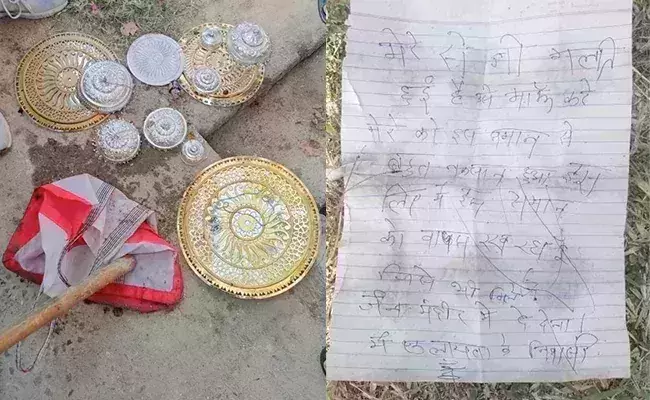 मेरे से जो गलति
हुई है मे माफी करे
मेरे को इस समान से
बहुत नुकसान हुआ इस
लिए मे इस समान
को वापस रख रहा हु
जिसे भी मिले
जैन मंदीर मे दे देना।
मै